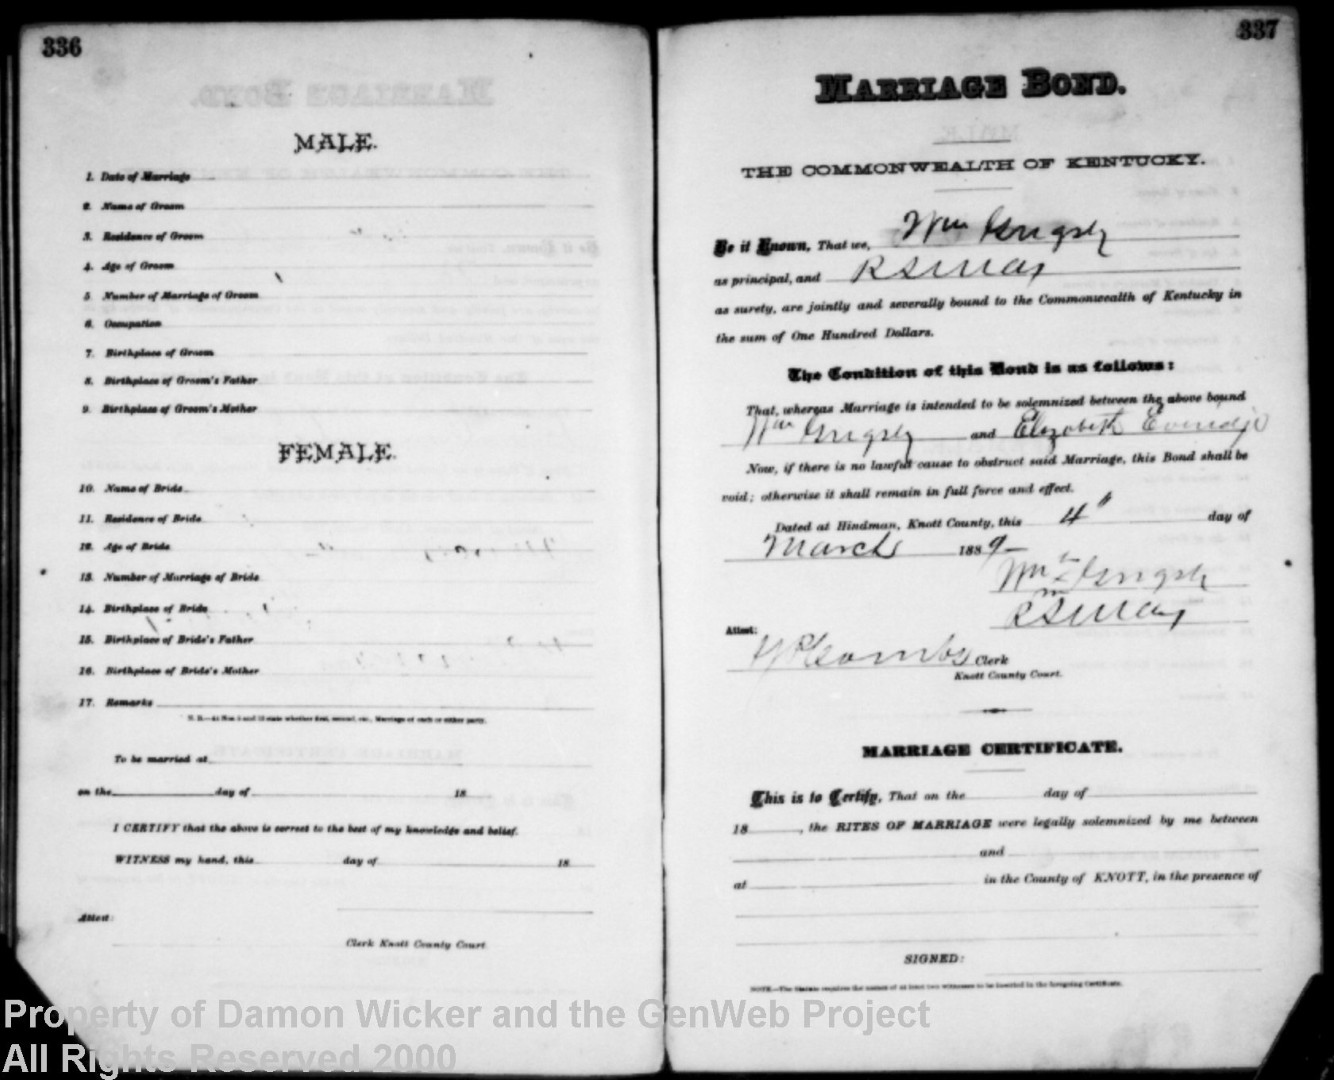 336
MALE.
1. Date of Marriage
2. Name of Groom
3. Residence of Groom
4. Age of Groom
5. Number of Marriage of Groom
6. Occupation
7. Birthplace of Groom
8. Birthplace of Groom's Father
9. Birthplace of Groom's Mother
FEMALE.
10. Name of Bride
11. Residence of Bride
12. Age of Bride
13. Number of Marriage of Bride
14. Birthplace of Bride
15. Birthplace of Bride's Father
16. Birthplace of Bride's Mother
17. Remarks
N. B.—At Nos. 5 and 13 state whether first, second, etc., Marriage of each or either party.
To be married at
on the day of 18
I CERTIFY that the above is correct to the best of my knowledge and belief.
WITNESS my hand, this day of 18
Attest:
Clerk Knott County Court
337
MARRIAGE BOND.
THE COMMONWEALTH OF KENTUCKY.
Be it Known, That we, Wm
as principal, and R S May
as surety, are jointly and severally bound to the Commonwealth of Kentucky in
the sum of One Hundred Dollars.
The Condition of this Bond is as follows:
That, whereas Marriage is intended to be solemnized between the above bound
Wm and Elizabeth
Now, if there is no lawful cause to obstruct said Marriage, this Bond shall be
void; otherwise it shall remain in full force and effect.
Dated at Hindman, Knott County, this 4" day of
March 1889
Wm
R S May
Attest:
Combs Clerk
Knott County Court.
MARRIAGE CERTIFICATE.
This is to Certify, That on the day of
18 , the RITES OF MARRIAGE were legally solemnized by me between
and
at in the County of KNOTT, in the presence of
SIGNED:
NOTE.—The Statute requires the names of at least two witnesses to be inserted in the foregoing Certificate.
Property of Damon Wicker and the GenWeb Project
All Rights Reserved 2000